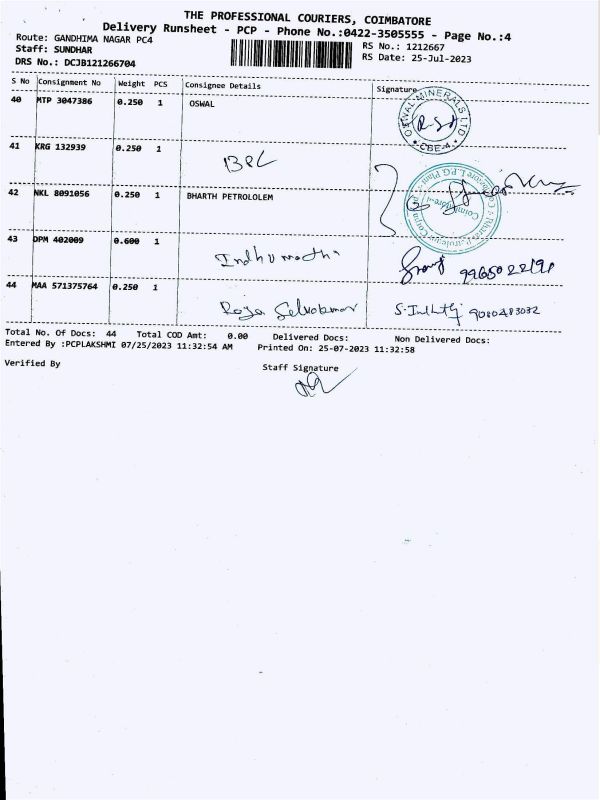 THE PROFESSIONAL COURIERS, COIMBATORE
Delivery Runsheet - PCP - Phone No.:0422-3505555 - Page No.:4
Route: GANDHIMA NAGAR PC4 RS No.: 1212667
Staff: SUNDHAR RS Date: 25-Jul-2023
DRS No.: DCJB121266704
S No Consignment No Weight PCS Consignee Details Signature
40 MTP 3047386 0.250 1 OSWAL
OSWAL MINERALS LTD
CBE-4
41 KRG 132939 0.250 1 BPC
42 NKL 8091056 0.250 1 BHARTH PETROLOLEM
43 DPM 402009 0.600 1 Indhumathi
44 MAA 571375764 0.250 1 Roja Selvakumar 9080483032
Total No. Of Docs: 44 Total COD Amt: 0.00 Delivered Docs: Non Delivered Docs:
Entered By :PCPLAKSHMI 07/25/2023 11:32:54 AM Printed On: 25-07-2023 11:32:58
Verified By Staff Signature